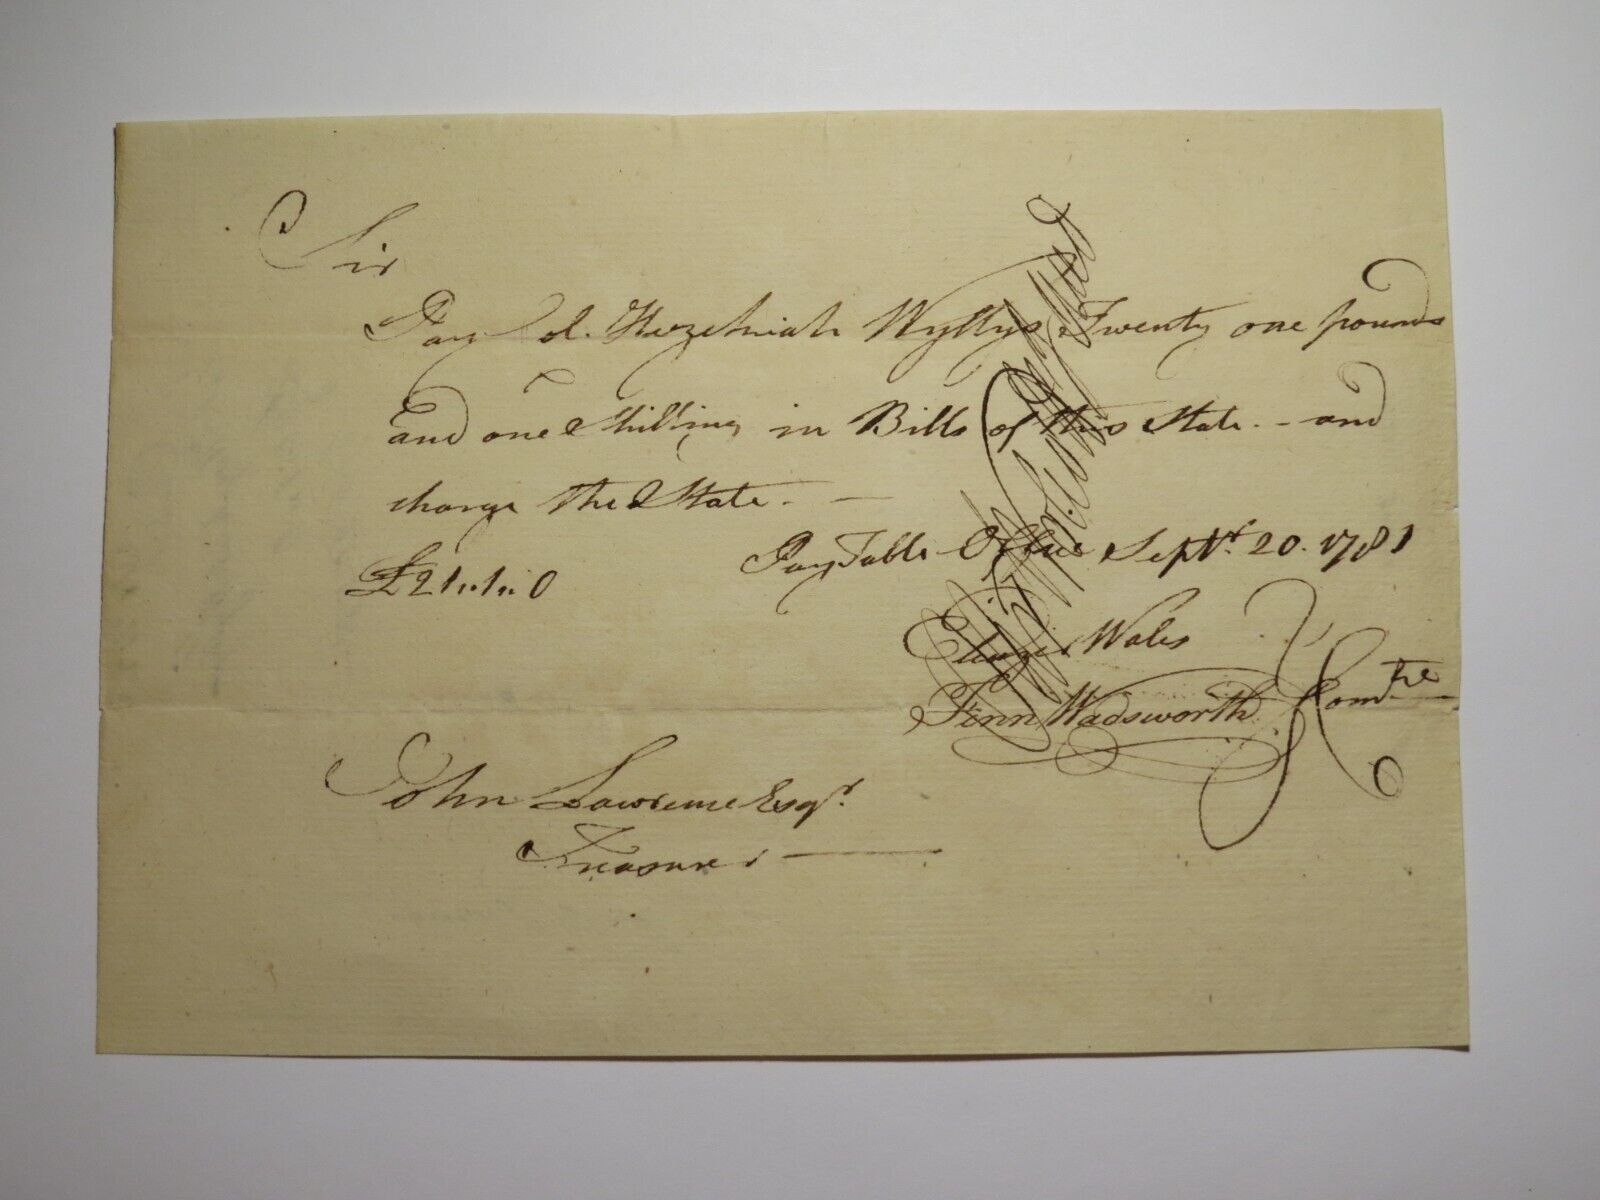 Sir
Pay Col. Hezekiah Wyllys Twenty one pounds
and one Shilling in Bills of this State. - and
charge the State. -
£21..1..0 Pay Table Office Septr. 20. 1781
Eleazer Wales
Fenn Wadsworth Comtee
John Lawrence Esqr.
Treasurer